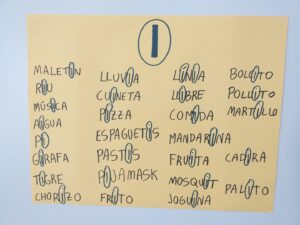 I
MALETIN
RIU
MÚSICA
AIGUA
PI
GIRAFA
TIGRE
CHORIZO
LLUVIA
CUINETA
PIZZA
ESPAGUETIS
PASTIS
PIJAMASK
FRITO
LINIA
LLIBRE
COMIDA
MANDARINA
FRUITA
MOSQUIT
JOGUINA
BOLLITO
POLLITO
MARTILLO
CADIRA
PALITO